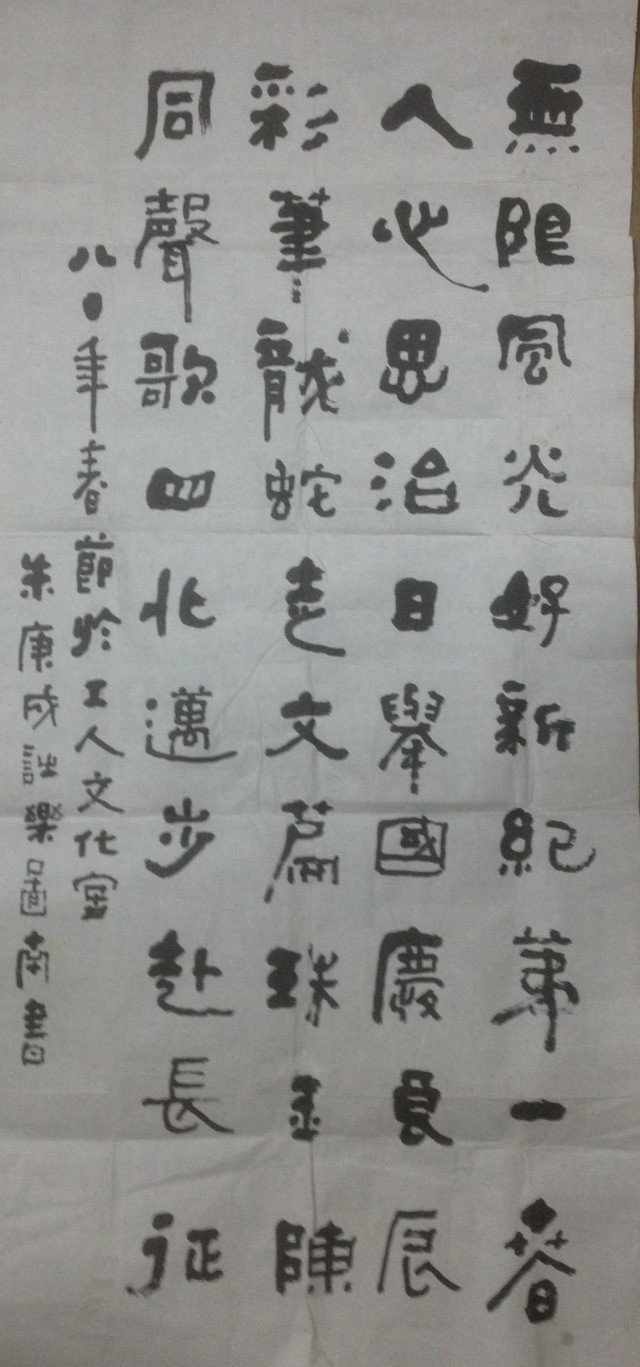 無限風光好新紀第一春
人心思治日舉國慶良辰
彩筆龍蛇走文篇珠玉陳
同聲歌四化邁步赴長征
八〇年春節於工人文化宮
朱庚成詩樂圖南書